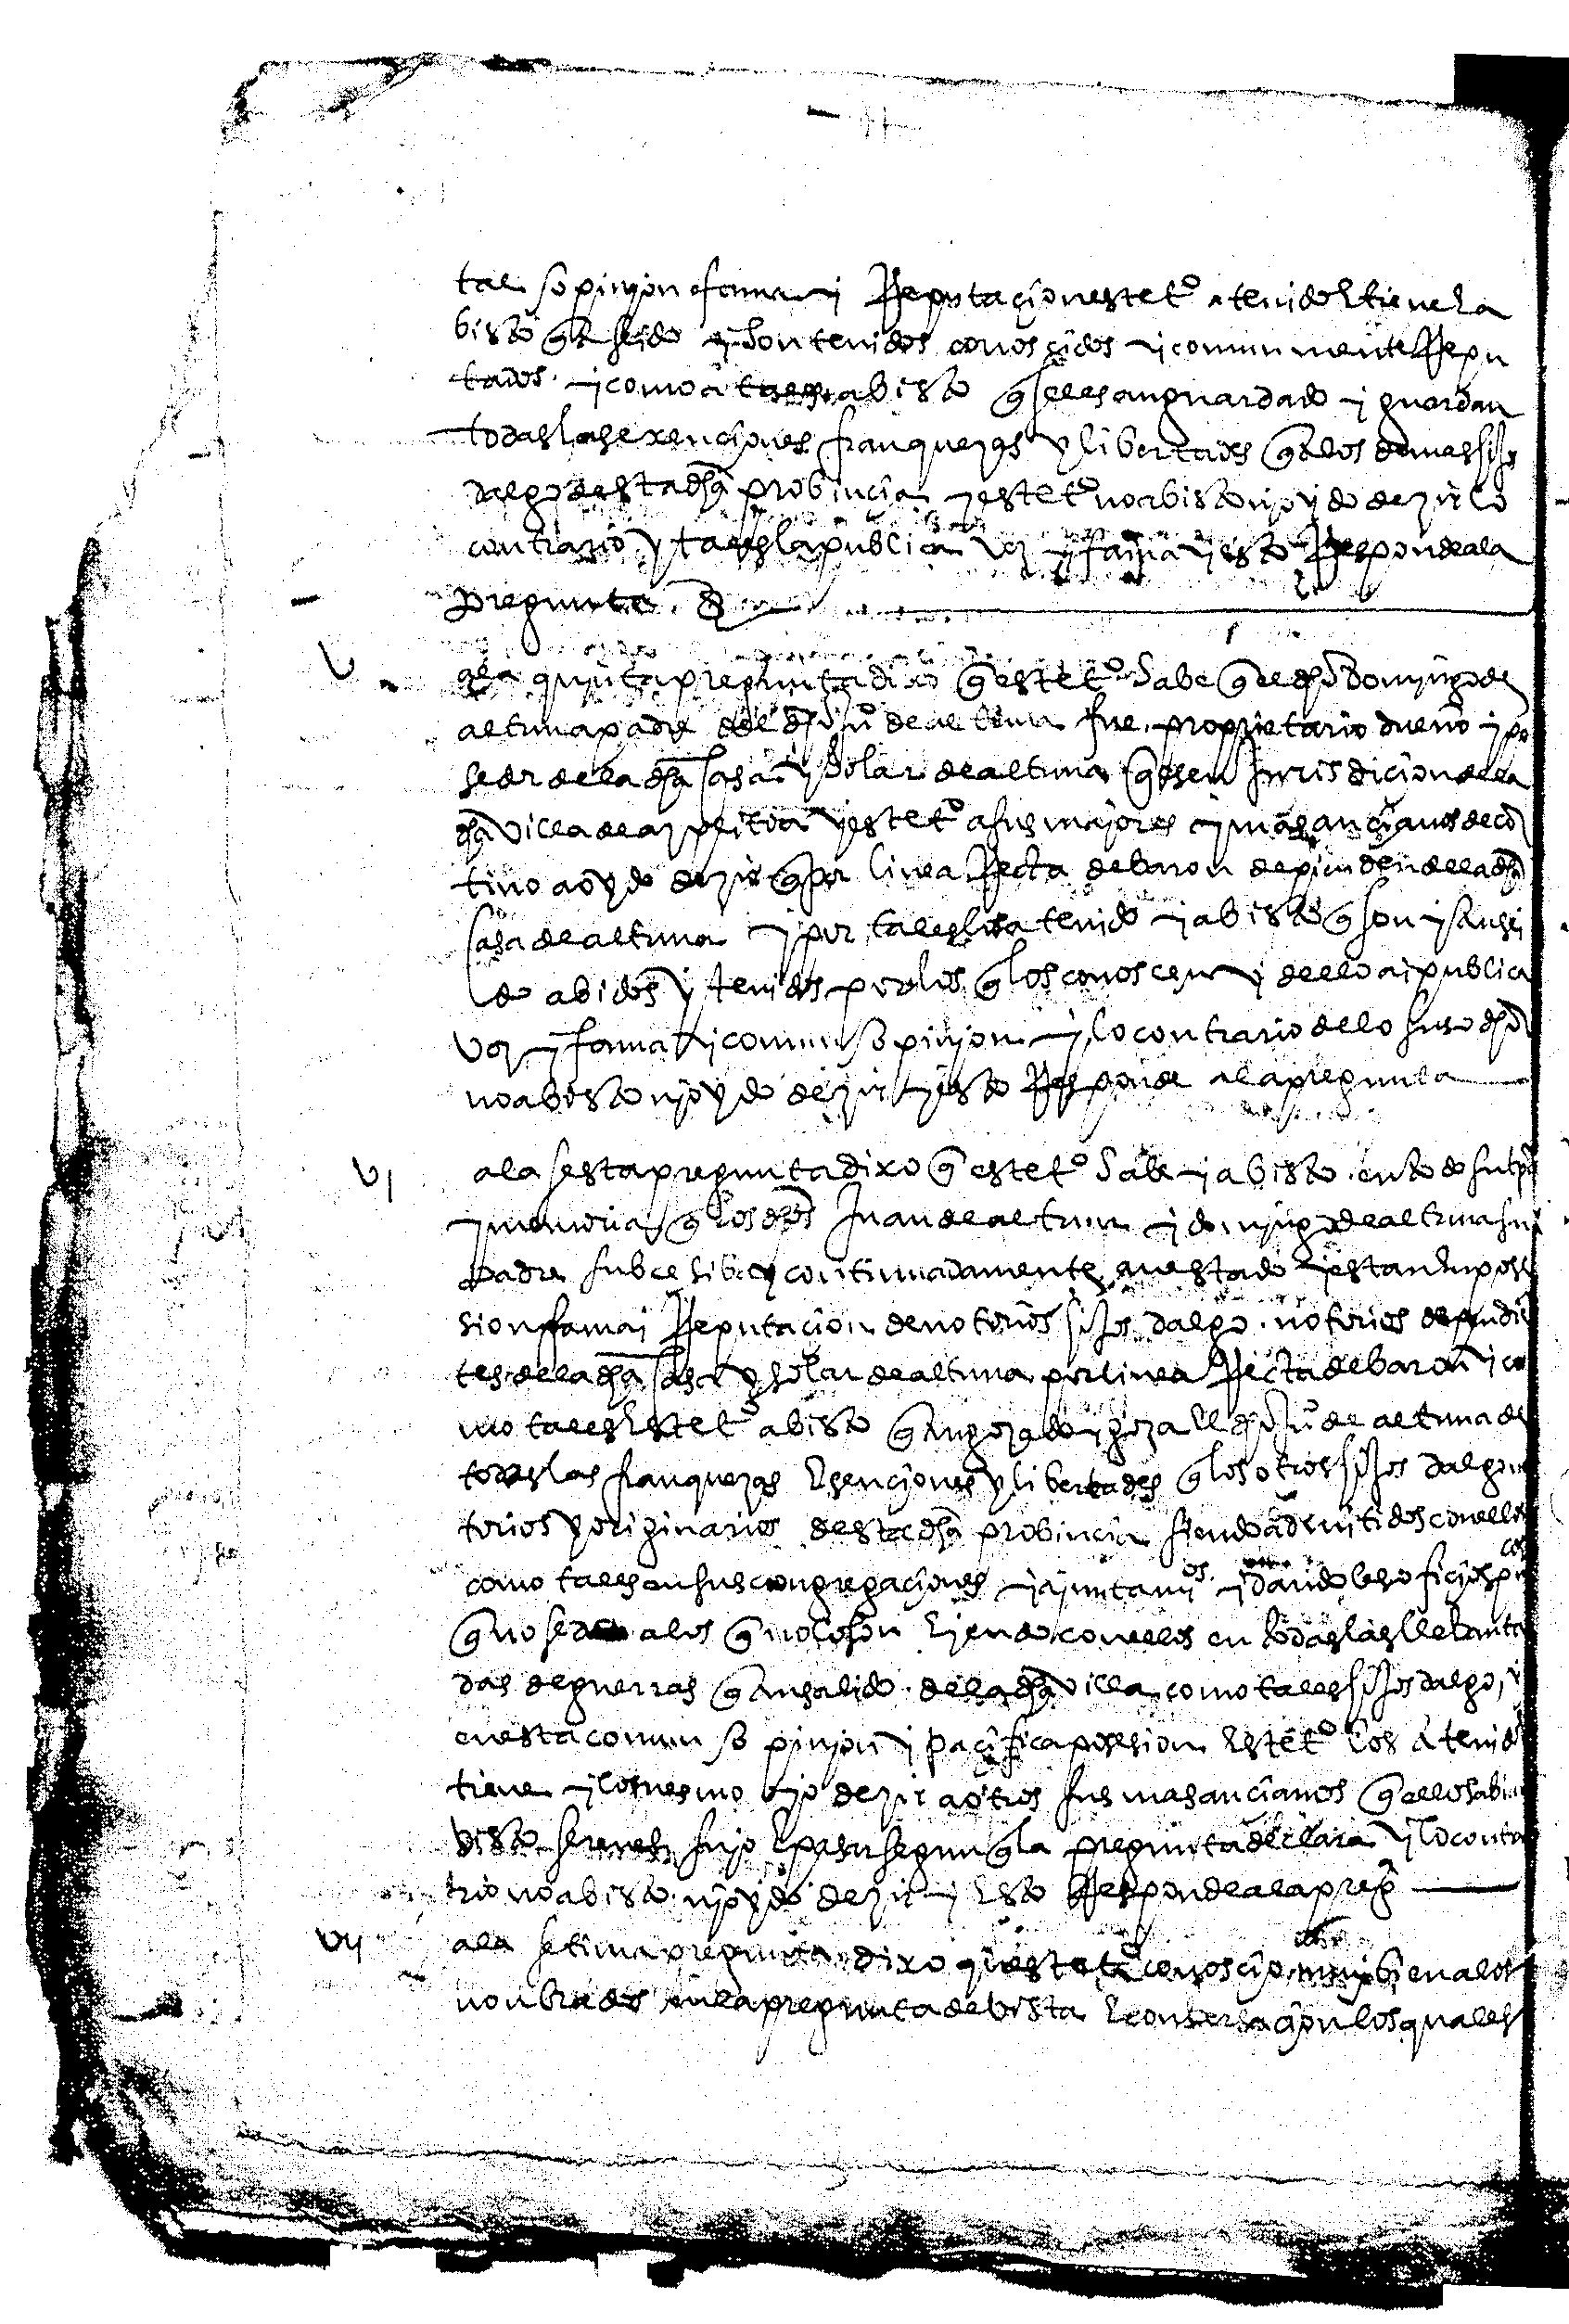 tal so pinion fama y Reputaçion este tº a tenido E tiene E a
bisto q̃ An seido y son tenidos conosçidos y comunmente Repu
tados y como a tales a bisto q̃ se les an guardado y guardan
todas las exençiones franquezas y libertades q̃ a los demas hijos
dalgo desta dha probinçia y este tº no a bisto ni oydo dezir lo
contrario y tal es la publica voz y fama y esto Responde a la
pregunta
V
a la quinta pregunta dixo q̃ este tº sabe q̃ el dho domingo de
altuna padre del dho juº de altuna fue propietario dueño y po
sedr de la dha casa y solar de altuna q̃ es en jurisdiçion de la
dha villa de azpeitia y este tº a sus maiores y mas ançianos de co
tino a oydo dezir q̃ por linea Recta de baron depienden de la dha
casa de altuna y por tales los a tenido y a bisto q̃ son y An sei
do abidos y tenidos por los q̃ los conosçen y dello ai publica
voz y fama y comun so pinion y lo contrario de lo suso dho
no a bisto ni oydo dezir y esto Responde a la pregunta
VI
a la sesta pregunta dixo q̃ este tº sabe y a bisto en todo su tpo
y memoria q̃ los dhos Juan de altuna y domingo de altuna su
padre subcesibe y continuadamente an estado y estan En poses
sion fama i Reputaçion de notorios hijos dalgo notorios dependie
tes de la dha casa y solar de altuna por linea Recta de baron y co
mo tales Este tº a bisto q̃ An gozado y goza El dho juº de altuna de
todas las franquezas Esençiones y libertades q̃ los otros hijos dalgo no
torios y originarios desta dha probinçia siendo admitidos con ellos
como tales en sus congregaçiones y aiuntamiºs y dandoles ofiçios pu
cos
q̃ no se dan a los q̃ no lo son E iendo con ellos en todas las lebanta
das de guerras q̃ An salido de la dha villa como tales hijos dalgo y
en esta comun so pinion y paçifica posesion Este tº los a tenido
tiene y lo mesmo oyo dezir a otros sus mas ançianos q̃ ellos abian
bisto segun q̃ la pregunta declara y lo contra
rio no a bisto ni oydo dezir y Esto Responde a la preg
VII
a la setima pregunta dixo que este tº conosçio mui bien a los
nonbrados en la pregunta de bista E conbersaçion los quales